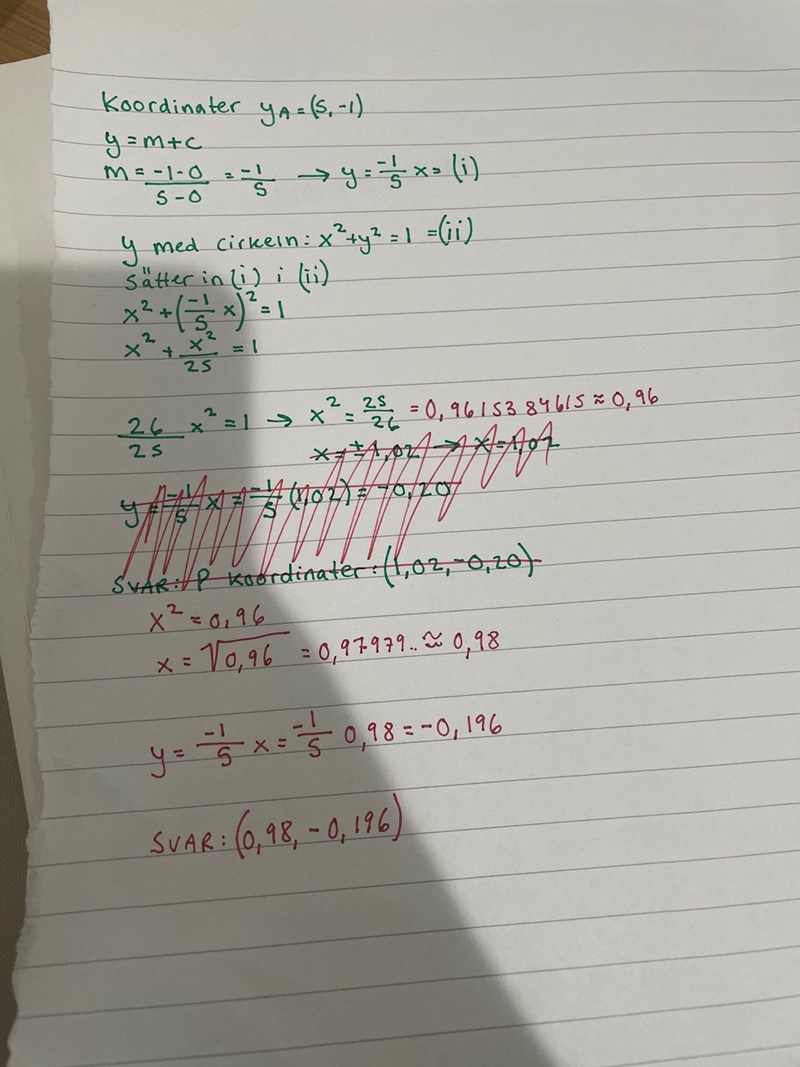 Koordinater yA = (5, -1)
y = m+c
m = -1-0/5-0 = -1/5 → y = -1/5 x = (i)
y med cirkeln: x²+y² = 1 = (ii)
Sätter in (i) i (ii)
x² + (-1/5 x)² = 1
x² + x²/25 = 1
26/25 x² = 1 → x² = 25/26 = 0,9615384615 ≈ 0,96
x = ±1,02 → x = 1,02
y = -1/5 x = -1/5 (1,02) = -0,20
SVAR: P koordinater: (1,02, -0,20)
x² = 0,96
x = √0,96 = 0,97979.. ≈ 0,98
y = -1/5 x = -1/5 0,98 = -0,196
SVAR: (0,98, -0,196)